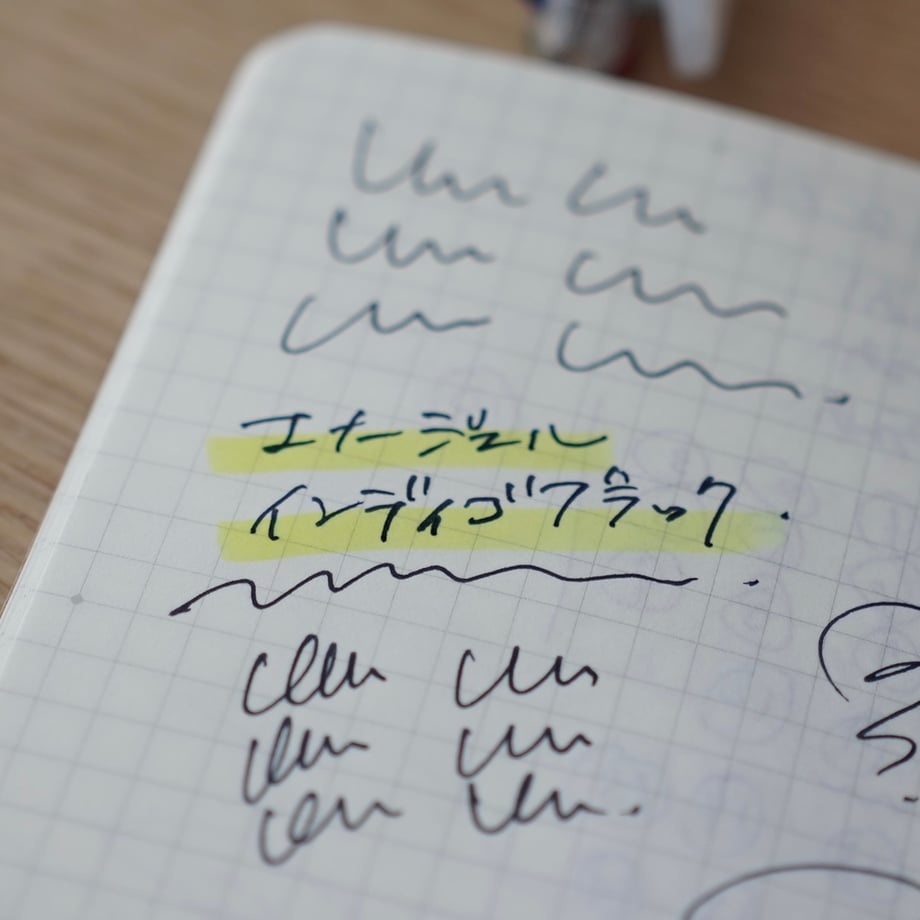 エナージェル
インディゴブラック.